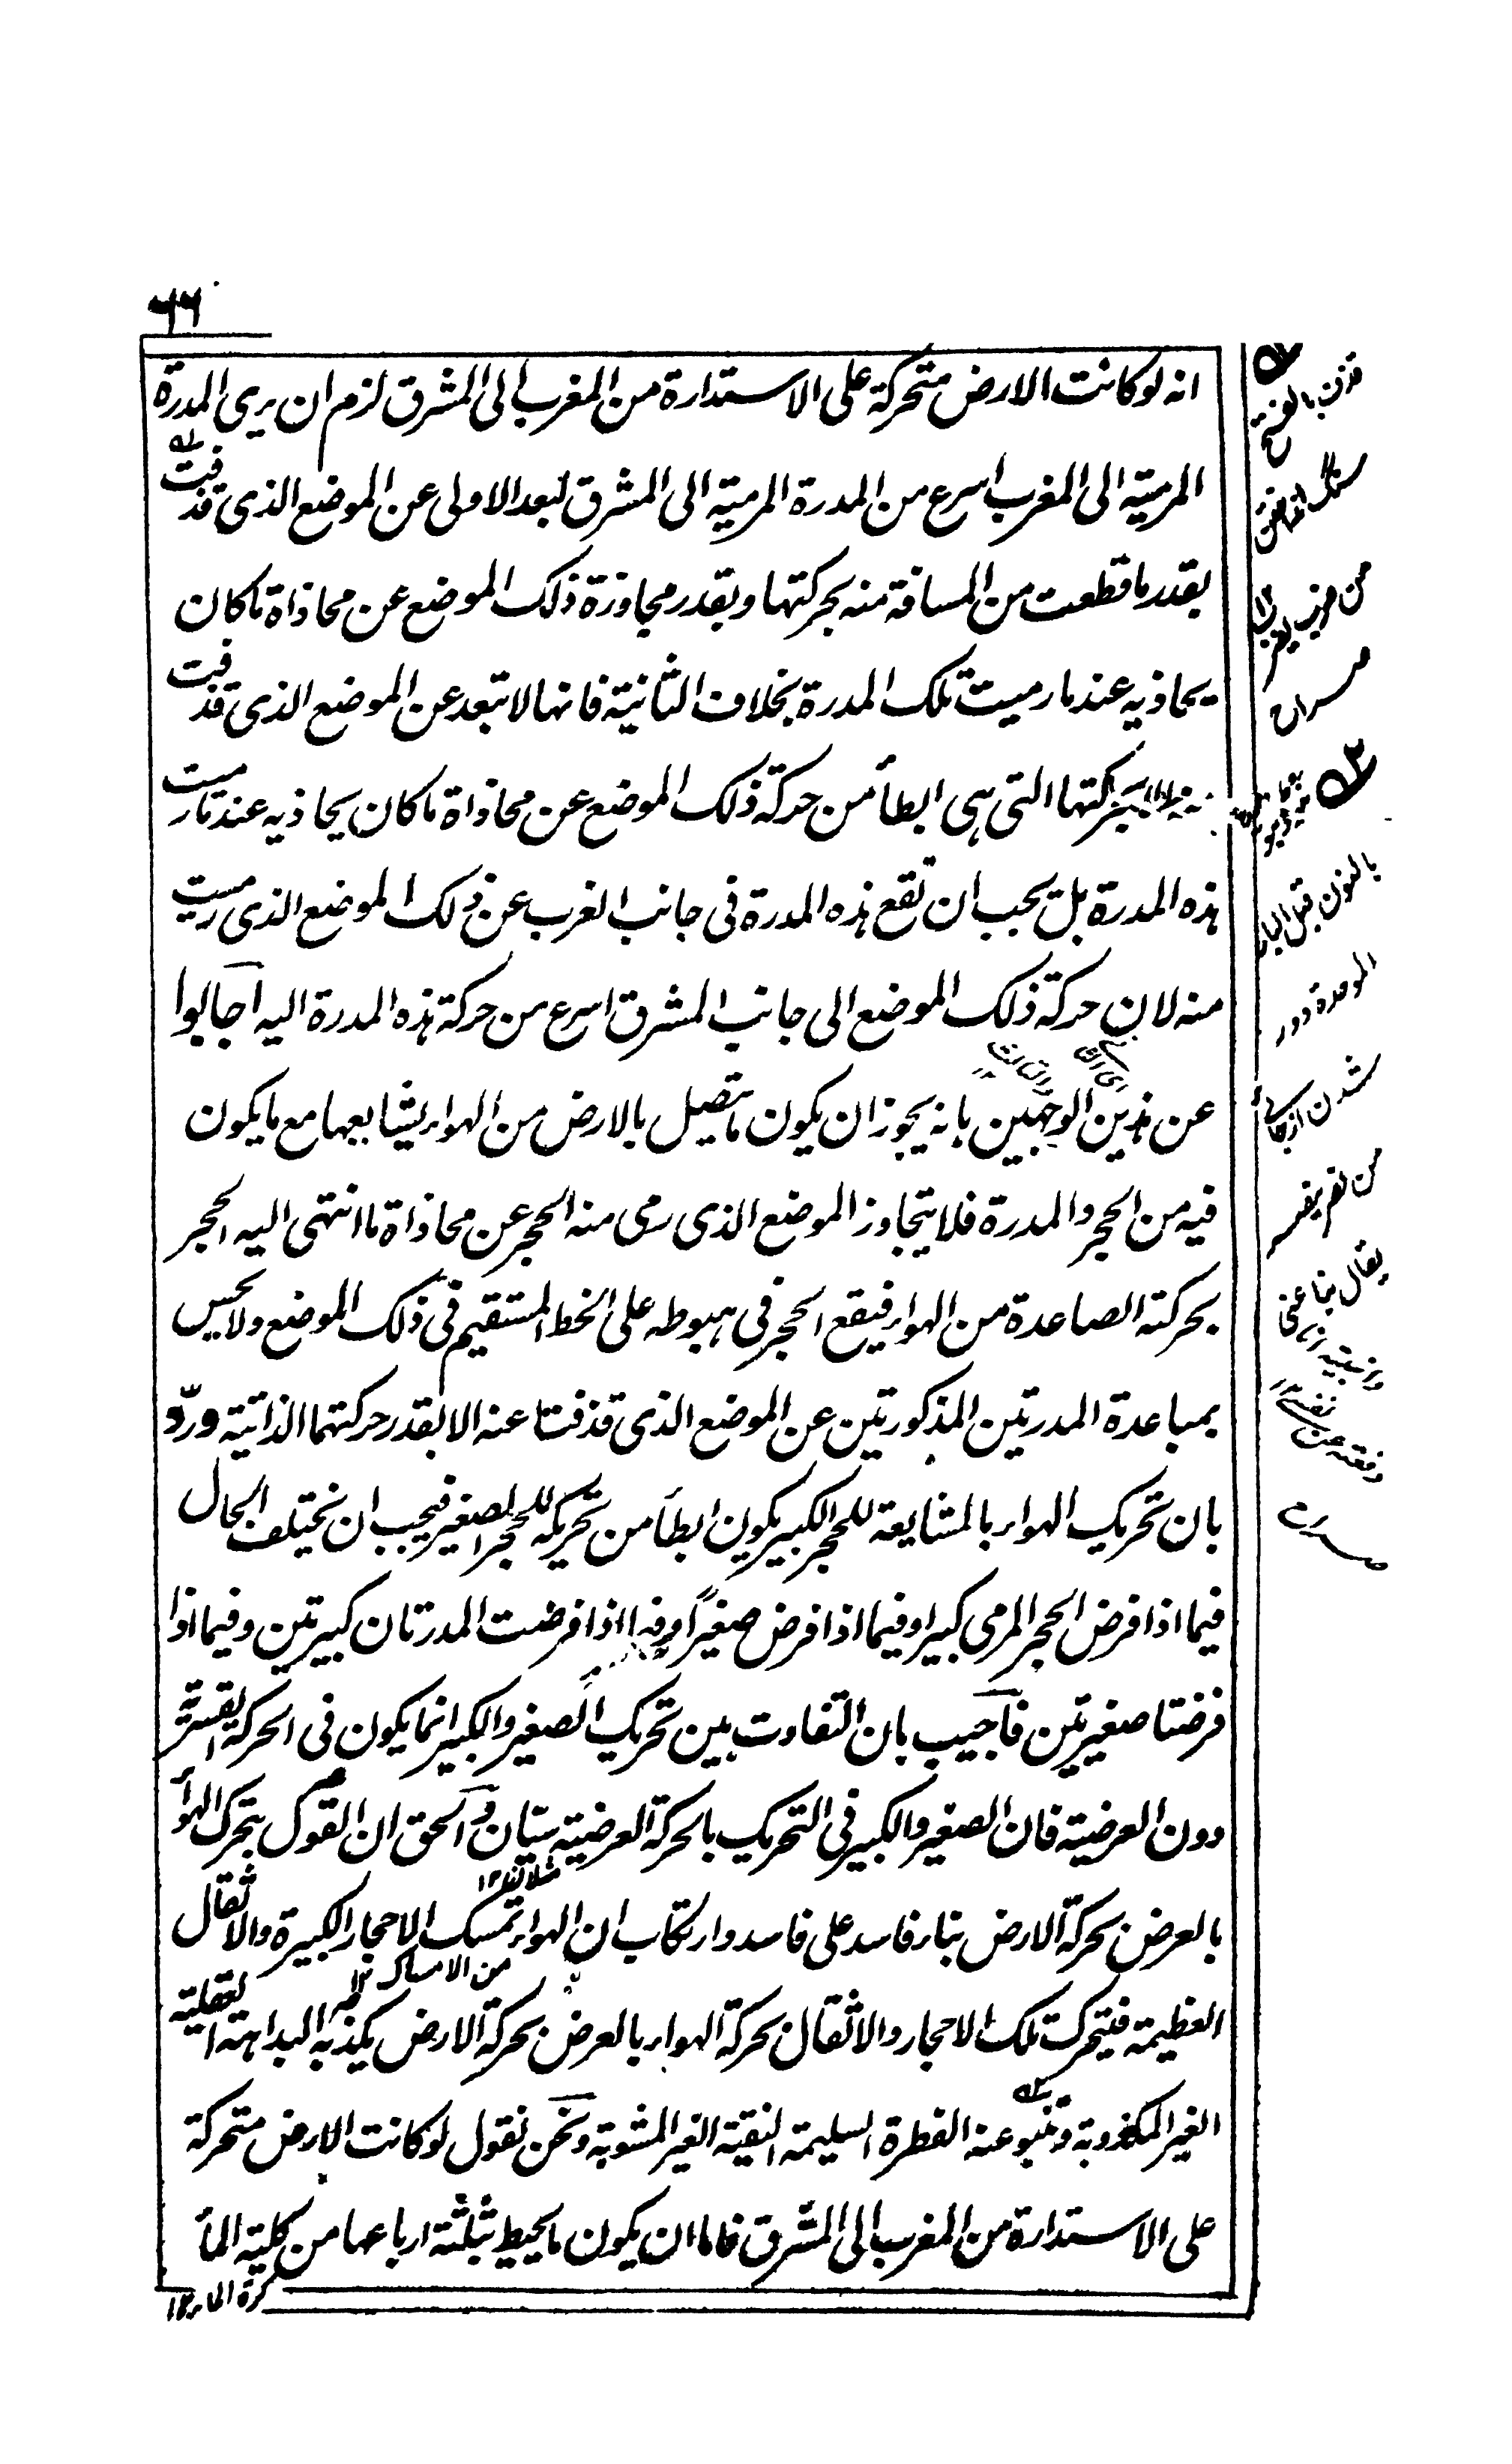 ٦٦
انه لو كانت الارض متحركة على الاستدارة من المغرب الى المشرق لزم ان يرى المدرة
المرمية الى المغرب اسرع من المدرة المرمية الى المشرق لبعد الاولى عن الموضع الذى قذفت
بقدر ما قطعت من المسافة منه بحركتها وبقدر مجاوزة ذلك الموضع عن محاذاة ما كان
يحاذيه عند ما رميت تلك المدرة بخلاف الثانية فانها لا تبعد عن الموضع الذى قذفت
التى هى ابطأ من حركة ذلك الموضع عن محاذاة ما كان يحاذيه عند ما رميت
هذه المدرة بل يجب ان تقع هذه المدرة فى جانب الغرب عن ذلك الموضع الذى رميت
منه لان حركة ذلك الموضع الى جانب المشرق اسرع من حركة هذه المدرة اليه اجابوا
عن هذين الوجهين بانه يجوز ان يكون ما يتصل بالارض من الهواء يشايعها مع ما يكون
فيه من الحجر والمدرة فلا يتجاوز الموضع الذى رمى منه الحجر عن محاذاة ما انتهى اليه الحجر
بحركته الصاعدة من الهواء فيقع الحجر فى هبوطه على الخط المستقيم فى ذلك الموضع ولا يحس
بمباعدة المدرتين المذكورتين عن الموضع الذى قذفتا عنه الا بقدر حركتهما الذاتية ورد
بان تحريك الهواء بالمشايعة للحجر الكبير يكون ابطأ من تحريكه للحجر الصغير فيجب ان يختلف الحال
فيما اذا فرض الحجر المرمى كبيرا وفيما اذا فرض صغيرًا وفيما اذا فرضت المدرتان كبيرتين وفيما اذا
فرضتا صغيرتين فاجيب بان التفاوت بين تحريك الصغير والكبير انما يكون فى الحركة القسرية
دون العرضية فان الصغير والكبير فى التحريك بالحركة العرضية سيّان والحق ان القول بتحرك الهواء
بالعرض بحركة الارض بناء فاسد على فاسد وارتكاب ان الهواء تمسك الاحجار الكبيرة والاثقال
من الامساك ١٢
العظيمة فيتحرك تلك الاحجار والاثقال بحركة الهواء بالعرض بحركة الارض يكذبه البداهة العقلية
الغير المكذوبة وتنبو عنه الفطرة السليمة النقية الغير المشوبة ونحن نقول لو كانت الارض متحركة
على الاستدارة من المغرب الى المشرق فاما ان يكون ما يحيط بثلثة ارباعها من كلية الماء
كرة الماء ١٢
قذف بالفتح
سنگ انداختن
من ضرب يضرب
بالنون قبل الباء
الموحدة دور
شدن از جائے
من نصر ينصر
يقال نبا عنى